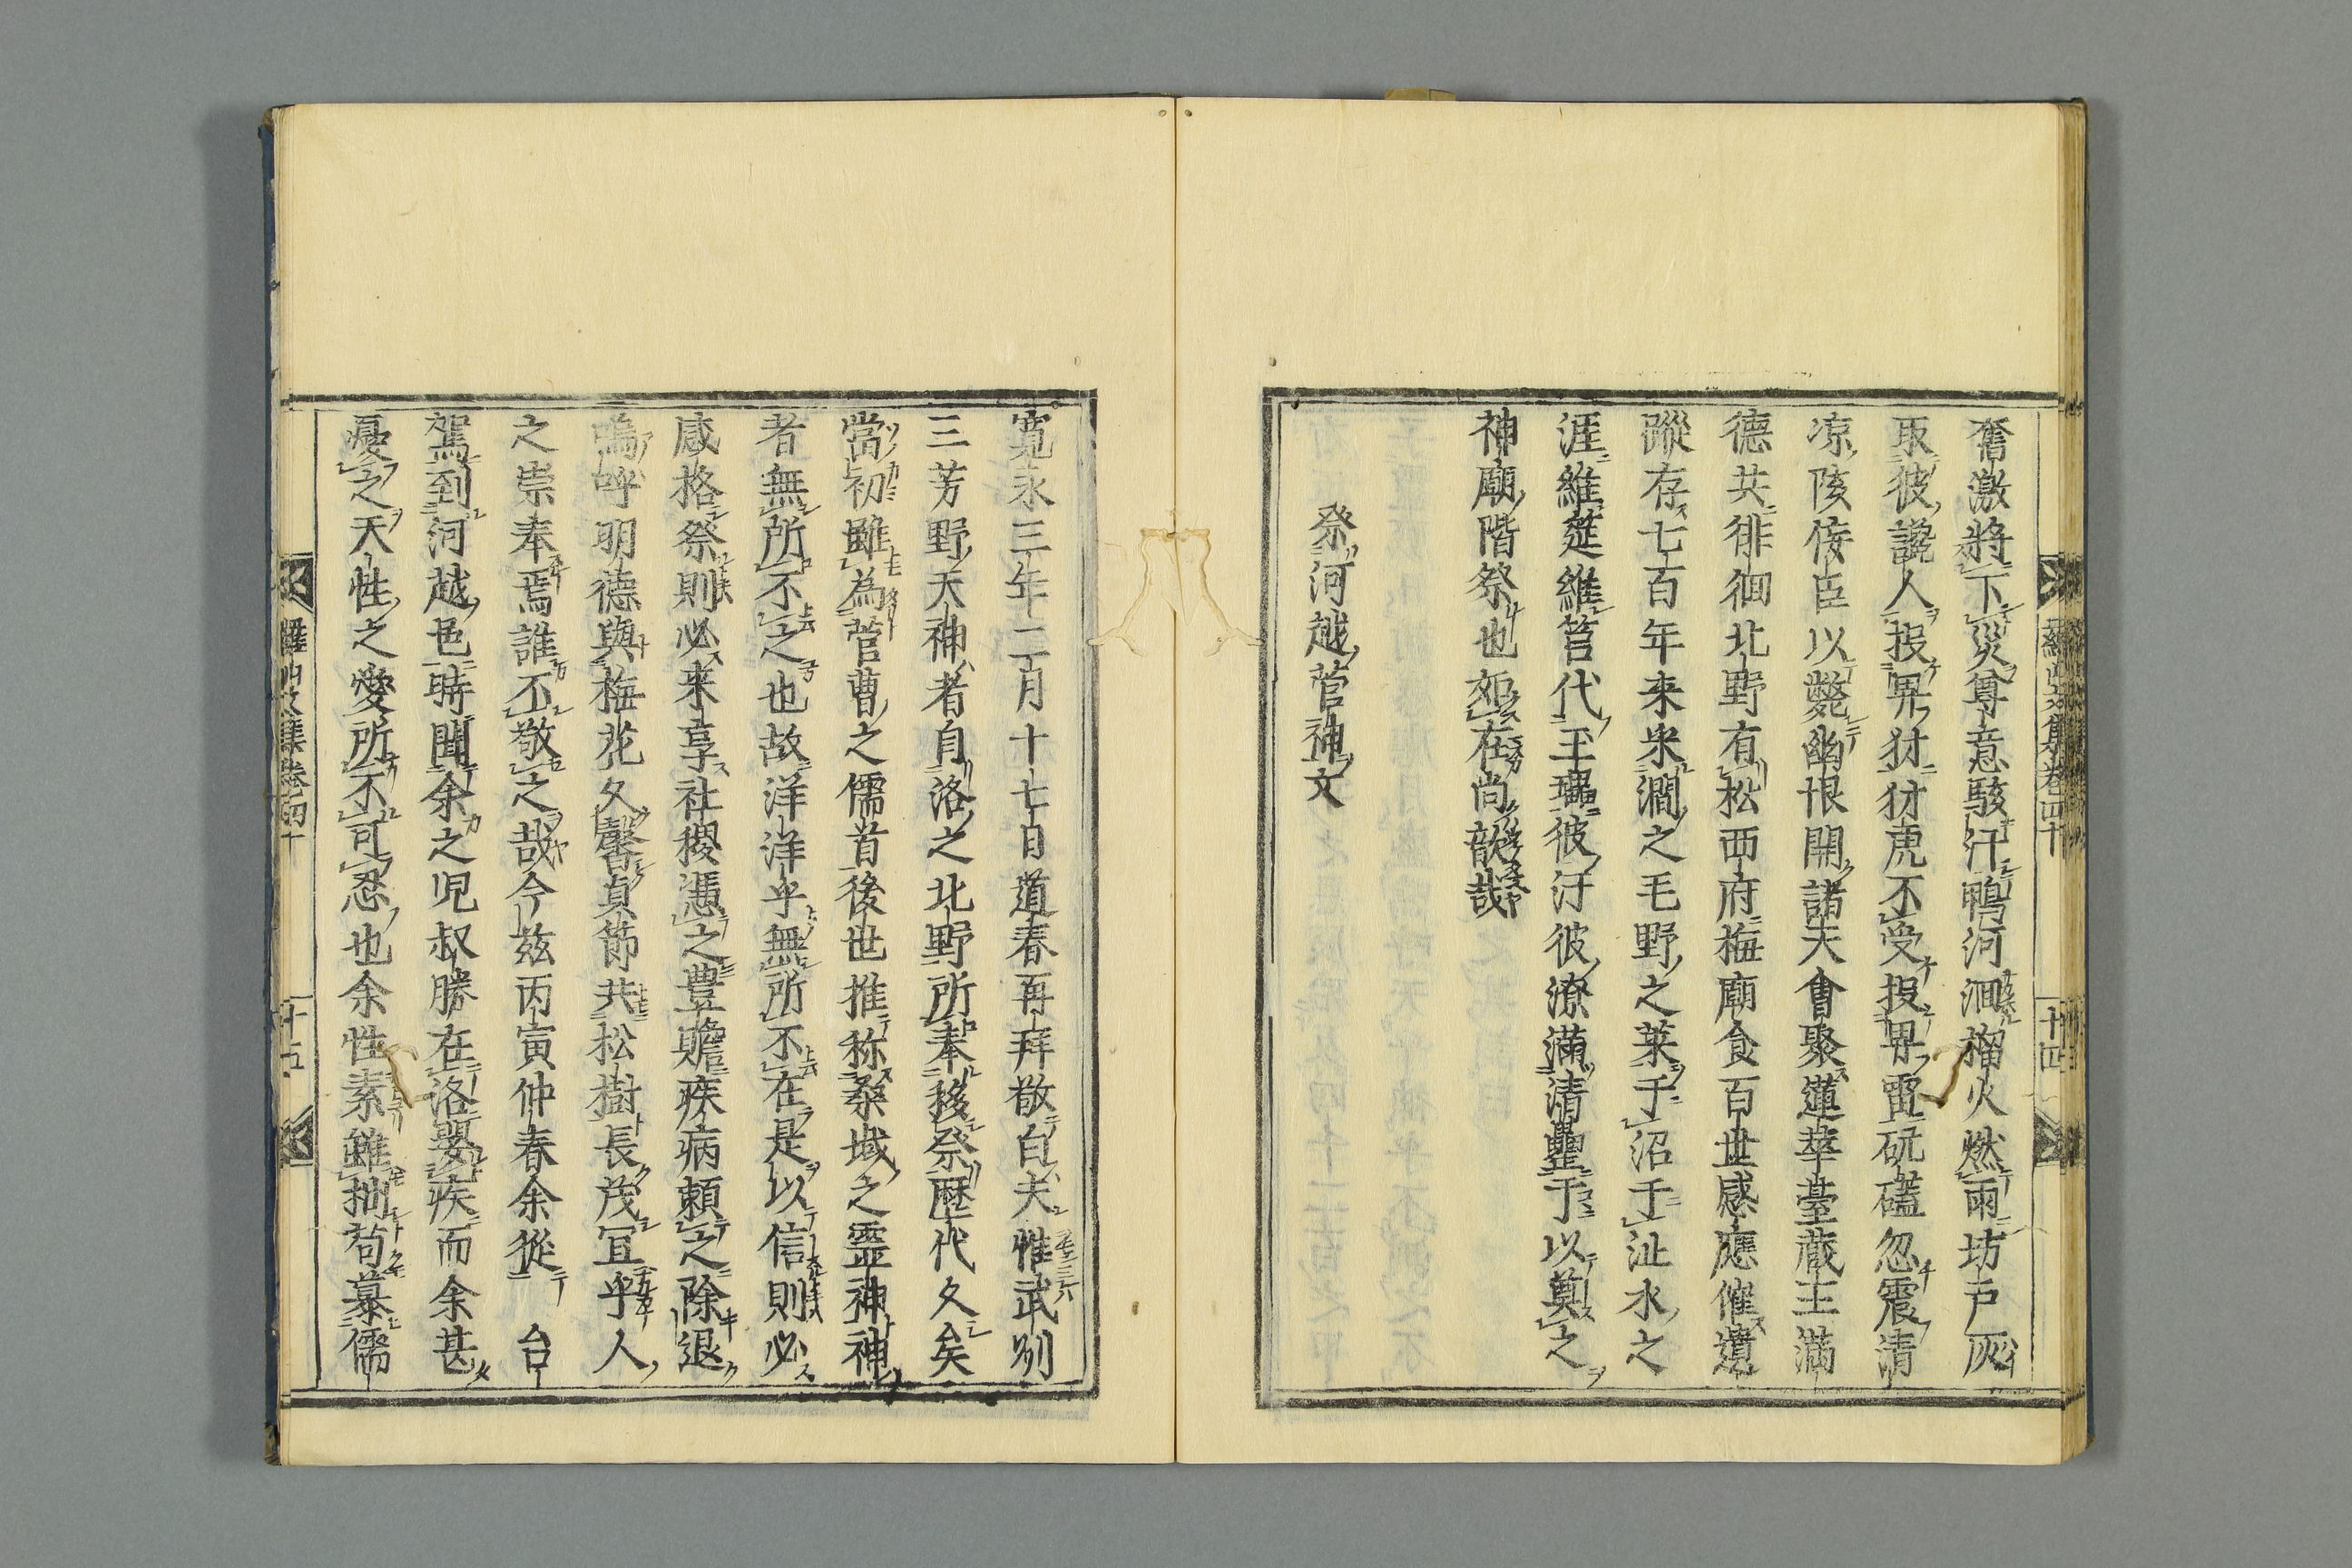 奮激將下災尊意駿汗鴨河洄榴火燃雨坊戸灰
取彼讒人投界犲犲虎不受投界雷砊礚忽震清
凉陔侫臣以斃幽恨開諸天會聚蓮華臺蔵王滿
德共徘徊北野有松西府梅廟食百世感應催遺
蹤存七百年来采澗之毛野之菜于沼于沚水之
涯維莚維筥代玉彼汙彼潦滿清罍于以奠之
神廟階祭也如在尚歆哉
祭河越菅神文
羅山文集卷四十
十四
寛永三年二月十七日道春再拜敬白夫惟武州
三芳野天神者自洛之北野所奉移祭歴代久矣
當初雖為菅曹之儒首後世推称桑域之靈神神
者無所不之也故洋洋乎無所不在是以信則必
感格祭則必来享社稷憑之豊贍疾病頼之除退
嗚呼明德與梅花久馨貞節共松樹長茂冝乎人
之崇奉焉誰不敬之哉今茲丙寅仲春余從　台
駕到河越邑時聞余之児叔勝在洛嬰疾而余甚
憂之天性之愛所不可忍也余性素雖拙苟慕儒
羅山文集卷四十
十五